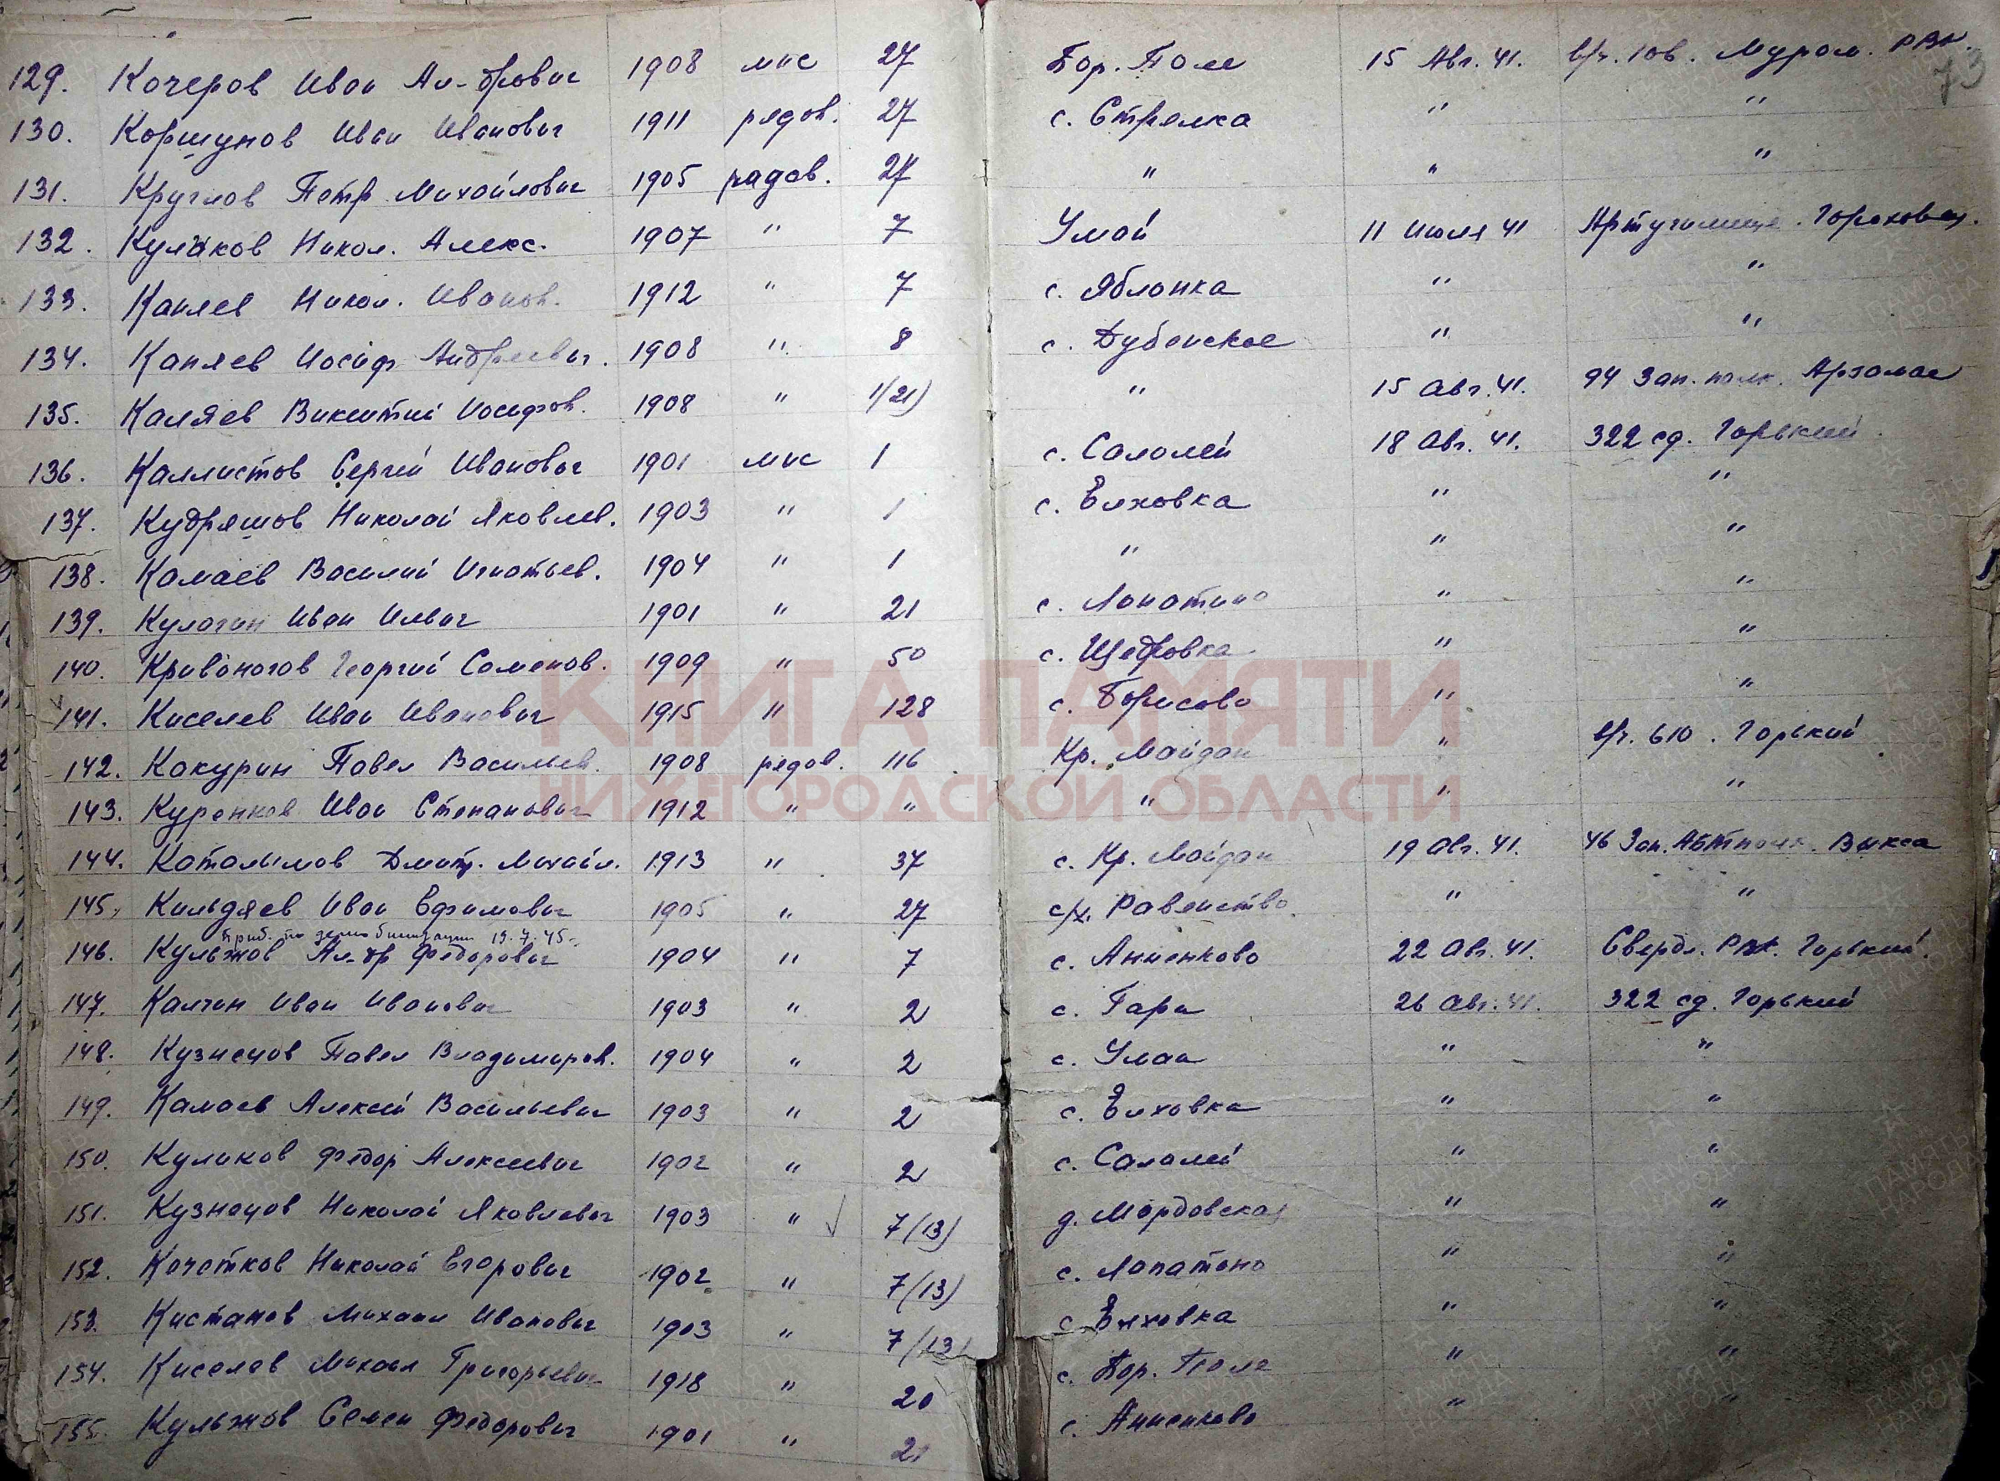 73
129. Кочеров Иван Ал-дрович 1908 мнс 27 Бор. Поле 15 Авг. 41. в/ч. 108. Муром. РВК.
130. Коршунов Иван Иванович 1911 рядов. 27 с. Стрелка " "
131. Круглов Петр Михайлович 1905 рядов. 27 " " "
132. Кулаков Никол. Алекс. 1907 " 7 Умай 11 июля 41 Артучилище. Гороховец.
133. Каляев Никол. Иванов. 1912 " 7 с. Яблонка " "
134. Каляев Иосиф Андреевич. 1908 " 8 с. Дубенское " "
135. Каляев Викентий Иосифов. 1908 " 1/21) " 15 авг. 41. 94 Зап. полк. Арзамас
136. Каллистов Сергей Иванович 1901 мнс 1 с. Салалей 18 авг. 41. 322 сд. Горький.
137. Кудряшов Николай Яковлев. 1903 " 1 с. Елховка " "
138. Камаев Василий Игнатьев. 1904 " 1 " " "
139. Кулагин Иван Ильич 1901 " 21 с. Лопатино " "
140. Кривоногов Георгий Семенов. 1909 " 50 с. Щедровка " "
141. Киселев Иван Иванович 1915 " 128 с. Борисово " "
142. Кокурин Павел Васильев. 1908 рядов. 116 Кр. Майдан " в/ч. 610. Горький
143. Куренков Иван Степанович 1912 " " " " "
144. Котолымов Дмит. Михайл. 1913 " 37 с. Кр. Майдан 19 авг. 41. 46 Зап. Автполк. Выкса
145. Кильдяев Иван Ефимович 1905 " 27 с/х. Равенство. " "
Приб. по демобилизации 19.7.45
146. Кульжов Ал-др Федорович 1904 " 7 с. Анненково 22 авг. 41. Свердл. РВК. Горький.
147. Калчин Иван Иванович 1903 " 2 с. Гари 26 авг. 41. 322 сд. Горький
148. Кузнецов Павел Владимиров. 1904 " 2 с. Умай " "
149. Камаев Алексей Васильевич 1903 " 2 с. Елховка " "
150. Куликов Федор Алексеевич 1902 " 2 с. Салалей " "
151. Кузнецов Николай Яковлевич 1903 " 7/13) д. Мордовская " "
152. Кочетков Николай Егорович 1902 " 7/13) с. Лопатено " "
153. Кистанов Михаил Иванович 1903 " 7/13) с. Елховка " "
154. Киселев Михаил Григорьевич 1918 " 20 с. Бор. Поле " "
155. Кульжов Семен Федорович 1901 " 21 с. Анненково " "
КНИГА ПАМЯТИ
НИЖЕГОРОДСКОЙ ОБЛАСТИ
ПАМЯТЬ НАРОДА